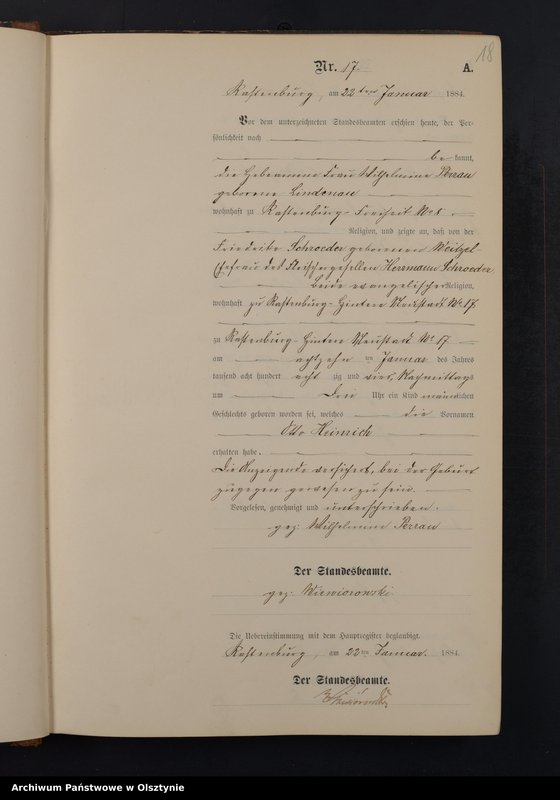 18
Nr. 17.
A.
Rastenburg, am 22ten Januar 1884.
Vor dem unterzeichneten Standesbeamten erschien heute, der Per-
sönlichkeit nach
be kannt,
die Hebeamme Frau Wilhelmine Perrau
geborene Lindenau
wohnhaft zu Rastenburg - Freiheit No 8
Religion, und zeigte an, daß von der
Friederike Schroeder geborenen Weitzel
Ehefrau des Fleischergesellen Herrmann Schroeder,
beide evangelischer Religion,
wohnhaft zu Rastenburg - Hintere Neustadt No 17
zu Rastenburg - Hintere Neustadt No 17
am achtzehn ten Januar des Jahres
tausend acht hundert acht zig und vier, Nachmittags
um Drei Uhr ein Kind männlichen
Geschlechts geboren worden sei, welches die Vornamen
Otto Heinrich
erhalten habe.
Die Anzeigende versichert, bei der Geburt
zugegen gewesen zu sein.
Vorgelesen, genehmigt und unterschrieben.
gez: Wilhelmine Perrau
Der Standesbeamte.
gez: Wiewiorowski.
Die Uebereinstimmung mit dem Hauptregister beglaubigt.
Rastenburg, am 22ten Januar. 1884.
Der Standesbeamte.
Wiewiorowski
Archiwum Państwowe w Olsztynie